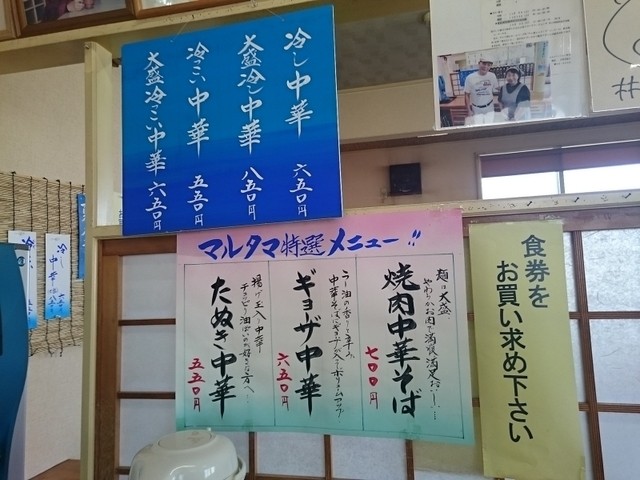 冷し中華 六五〇円
大盛冷し中華 八五〇円
冷こい中華 五五〇円
大盛冷こい中華 六五〇円
マルタマ特選メニュー!!
麺は大盛、
やわらかお肉で満腹満足
焼肉中華そば
七〇〇円
ラー油の香りと辛み、
ギョウザ中華
六五〇円
揚げ玉入中華
チョッピリ油っぽいのが好きな方へ
たぬき中華
五五〇円
食券を
お買い求め下さい
冷し中華